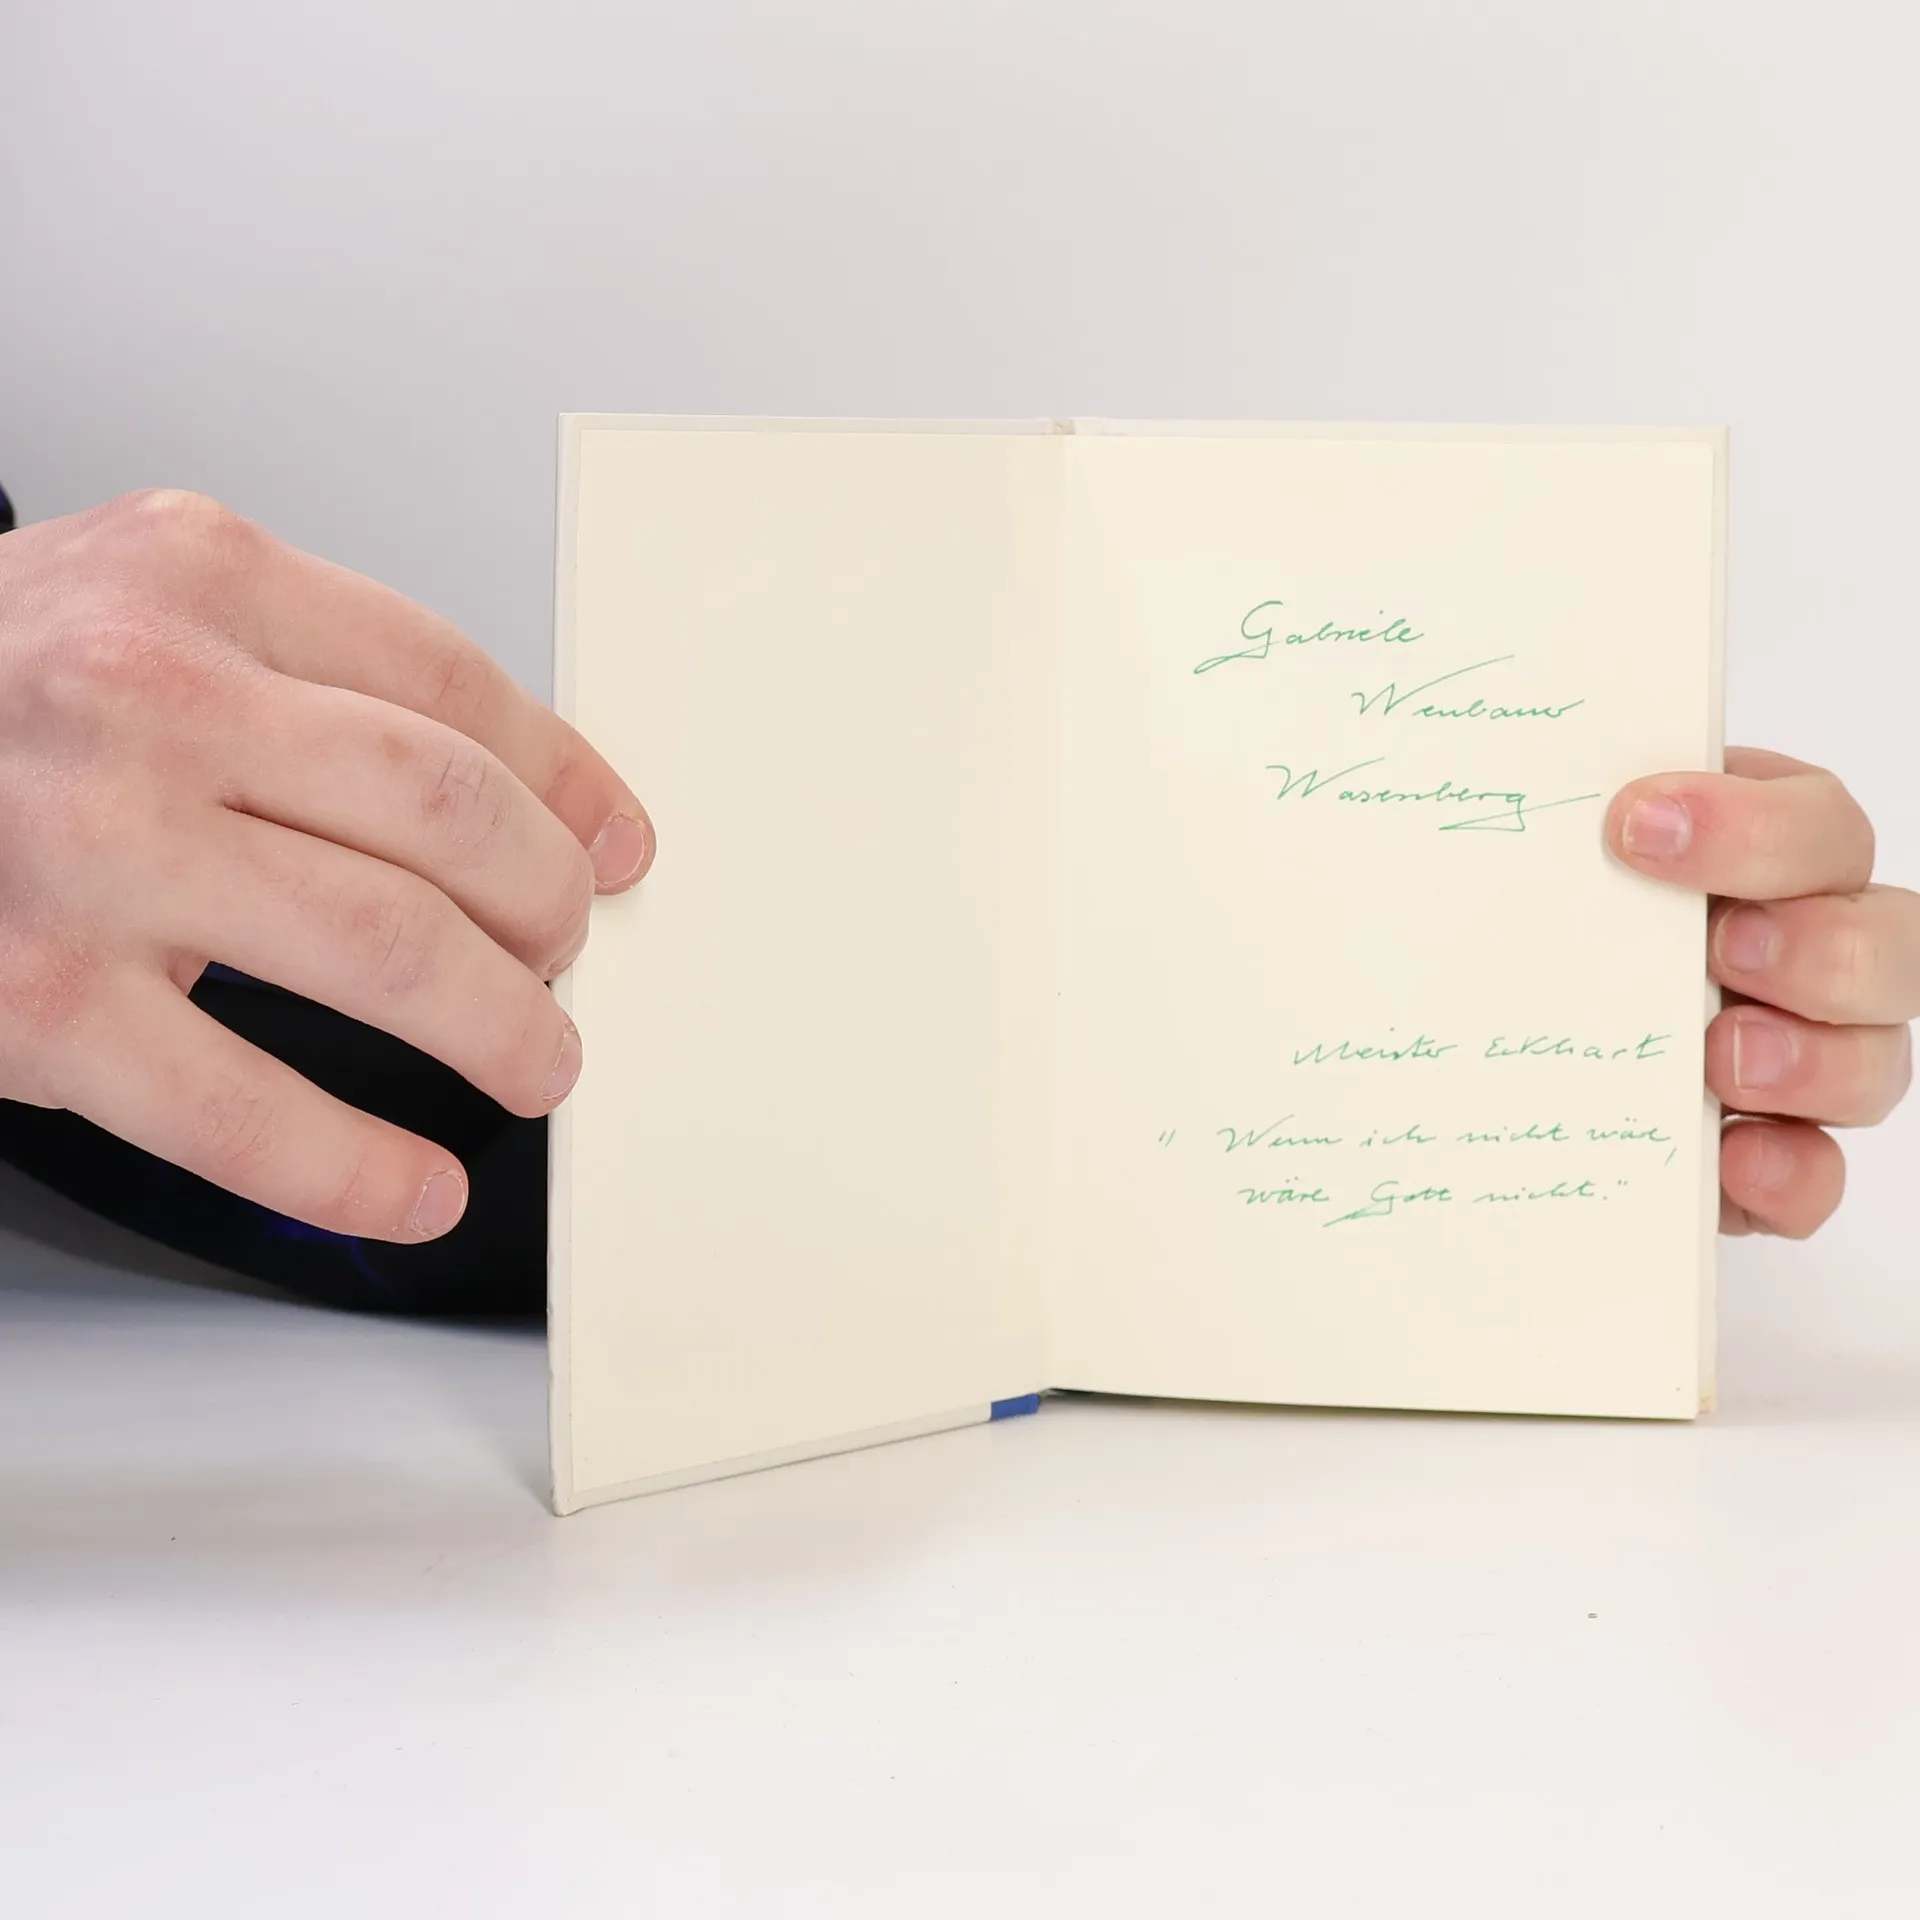 Gabriele
Wasenberg
Meister Eckhart
"Wenn ich nicht wäre,
wäre Gott nicht."